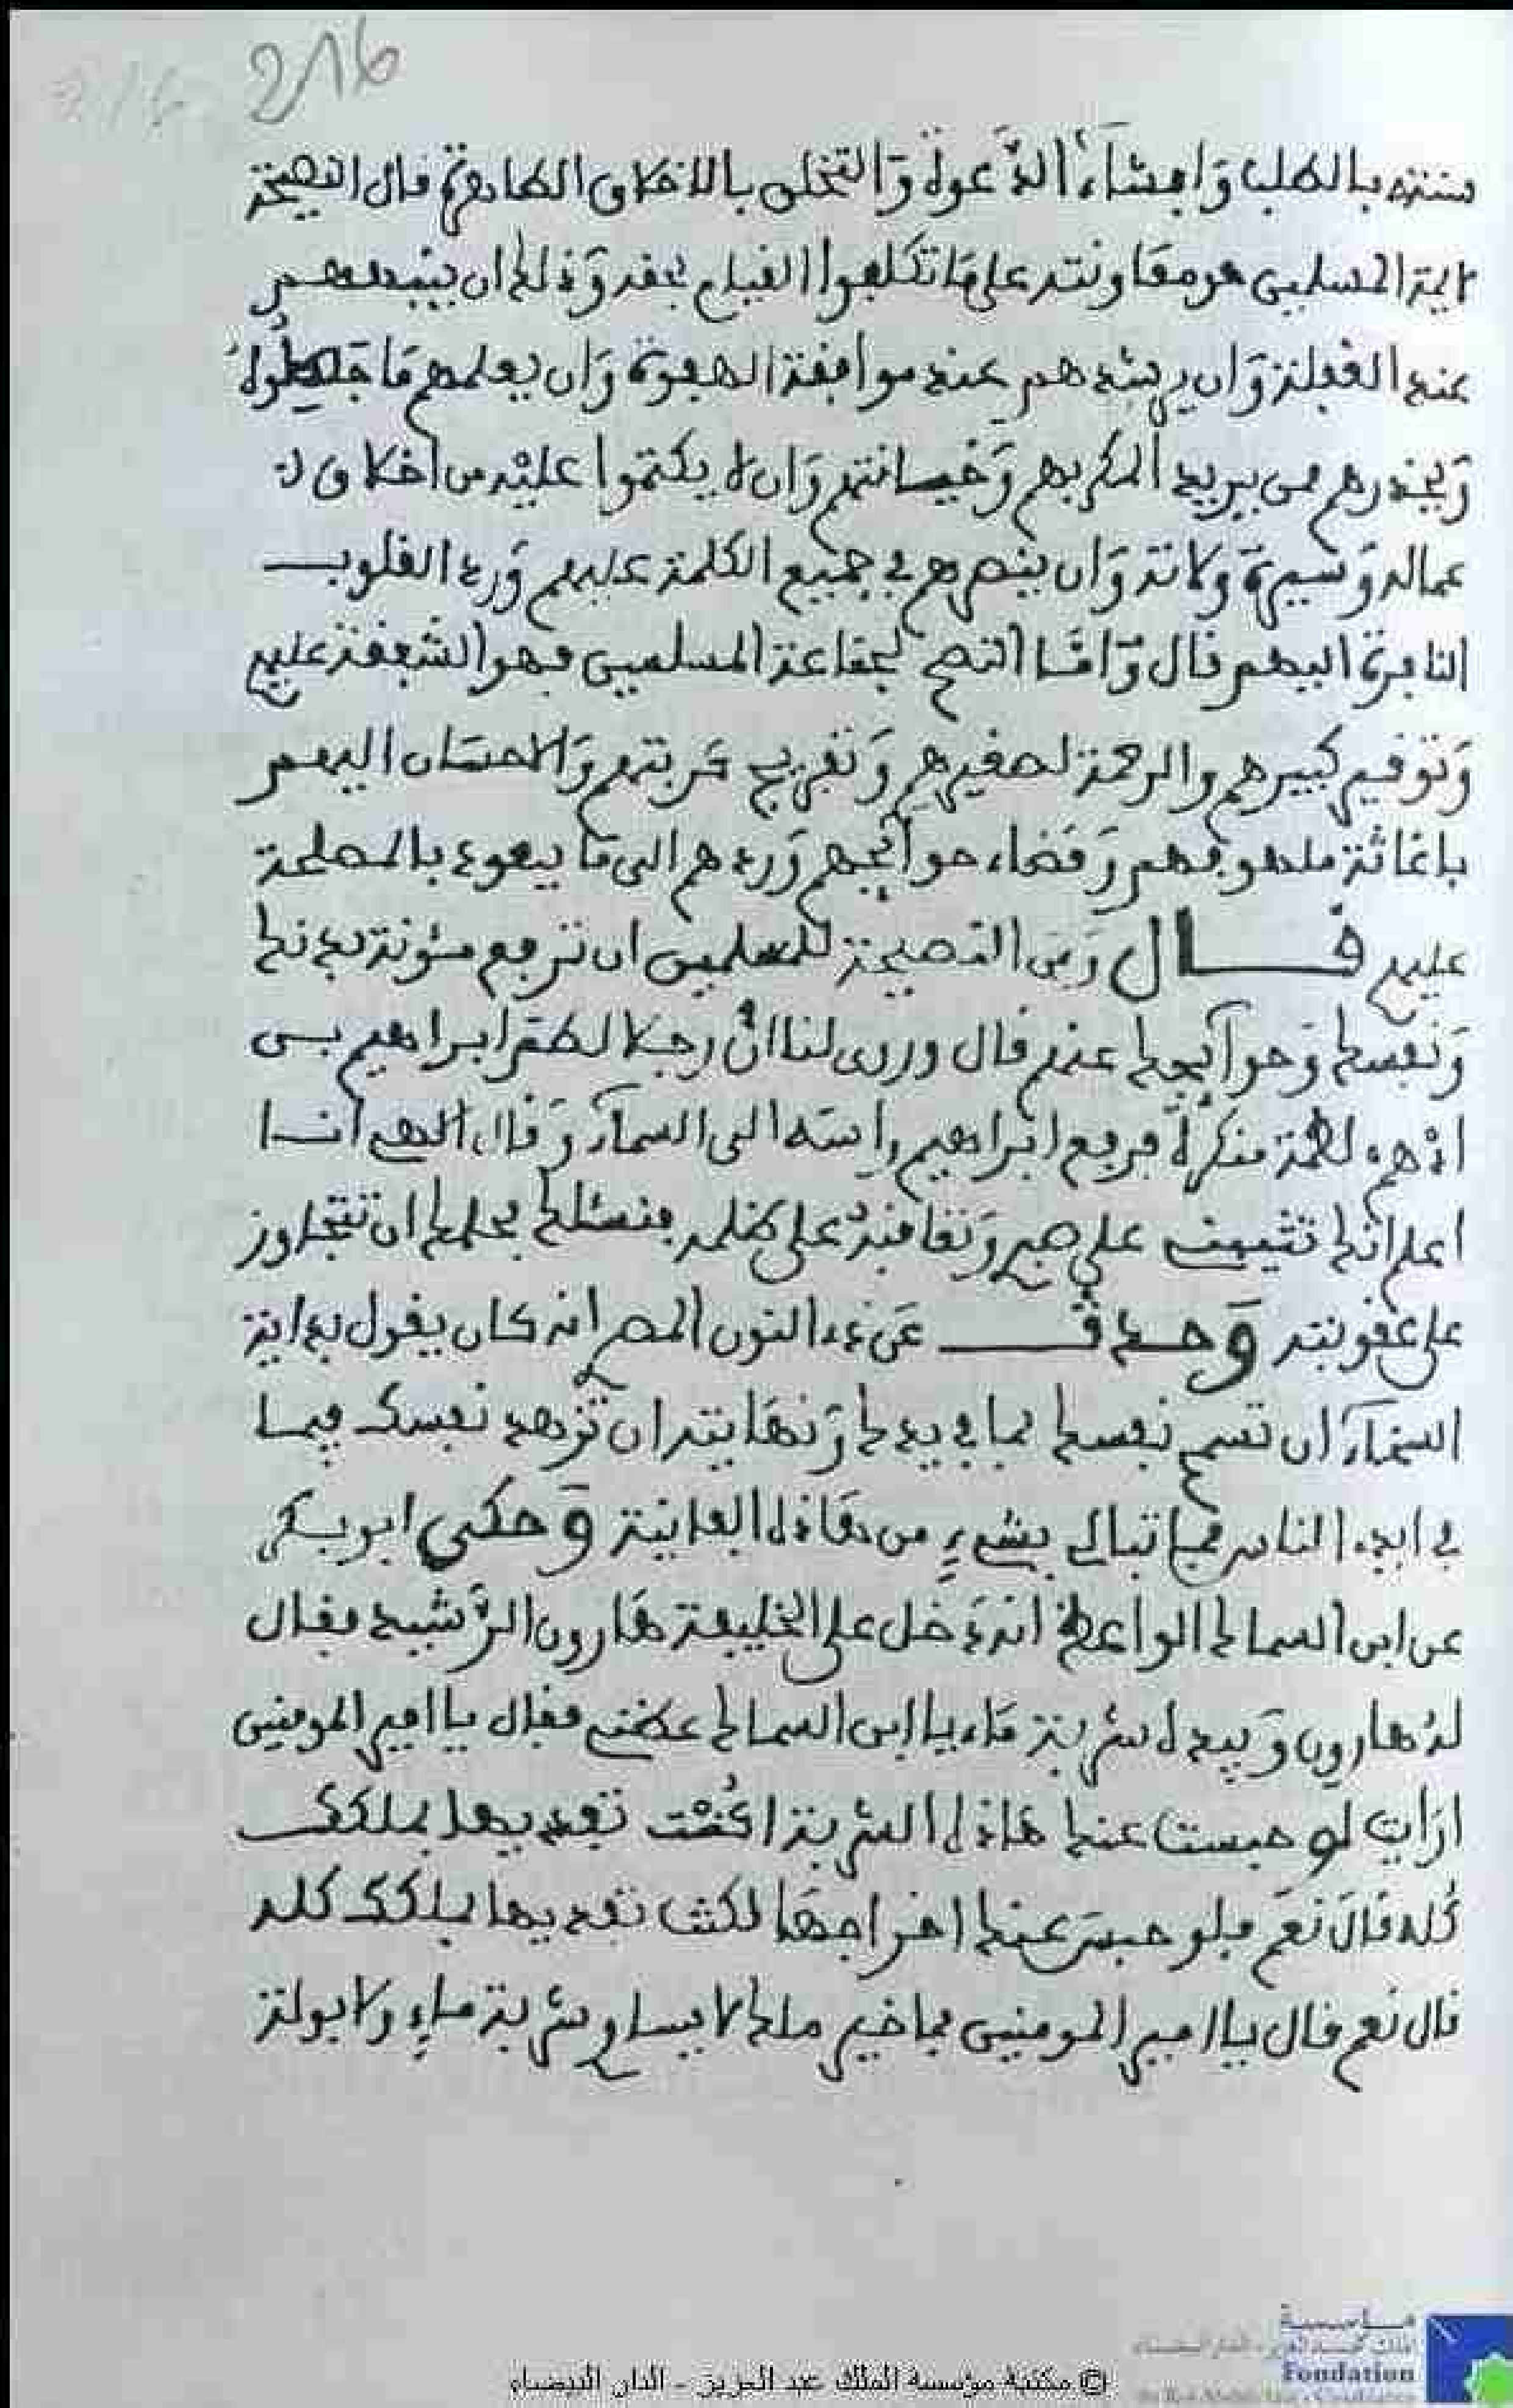 216
سنته بالطلب وافشاء الدعوة والتخلق بالاخلاق الطاهرة قال النصيحة
لايمة المسلمين هو معاونته على ما تكلفوا القيام بحقه وذلك ان ينبههم
عند الغفلة وان يرشدهم عند موافقة الهفوة وان يعلمهم ما جهلوه
ويحذرهم ممن يريد المكر بهم وخيانتهم وان لا يكتموا عليه من اخلاق
عماله وسيرة ولاته وان ينصرهم في جميع الكلمة عليهم ورد القلوب
النافرة اليهم قال واما النصح لجماعة المسلمين فهو الشفقة عليهم
وتوقير كبيرهم والرحمة لصغيرهم وتفريج كربتهم والاحسان اليهم
باغاثة ملهوفهم وقضاء حوائجهم وردهم الى ما يعود بالمصلحة
عليهم قال ومن النصيحة للمسلمين ان ترفع مئونة بدنك
ونفسك وحوائجك عنهم قال وروى لنا ان رجلا لطم ابراهيم بن
ادهم لطمة منكرة فرفع ابراهيم راسه الى السماء وقال الهي انا
اعلم انك تثيبني على صبري وتعاقبه على ظلمه فنسئلك بحلمك ان تتجاوز
على عقوبته وحدث عن ذي النون المصري انه كان يقول بداية
السخاء ان تسمح نفسك بما في يدك ونهايته ان تزهد نفسك فيما
في ايدي الناس فما تبالي بشيء من هاذه الفانية وحكى ابو بكر
عن ابن السماك الواعظ انه دخل على الخليفة هارون الرشيد فقال
له هارون وبيده شربة ماء يا ابن السماك عظني فقال يا امير المومنين
ارايت لو حبست عنك هاذه الشربة اكنت تفديها بملكك
كله قال نعم فلو حبس عنك اخراجها لكنت تفديها بملكك كله
قال نعم فقال يا امير المومنين فما خير ملك لا يساوي شربة ماء ولا بولة
© مكتبة مؤسسة الملك عبد العزيز - الدار البيضاء
Fondation